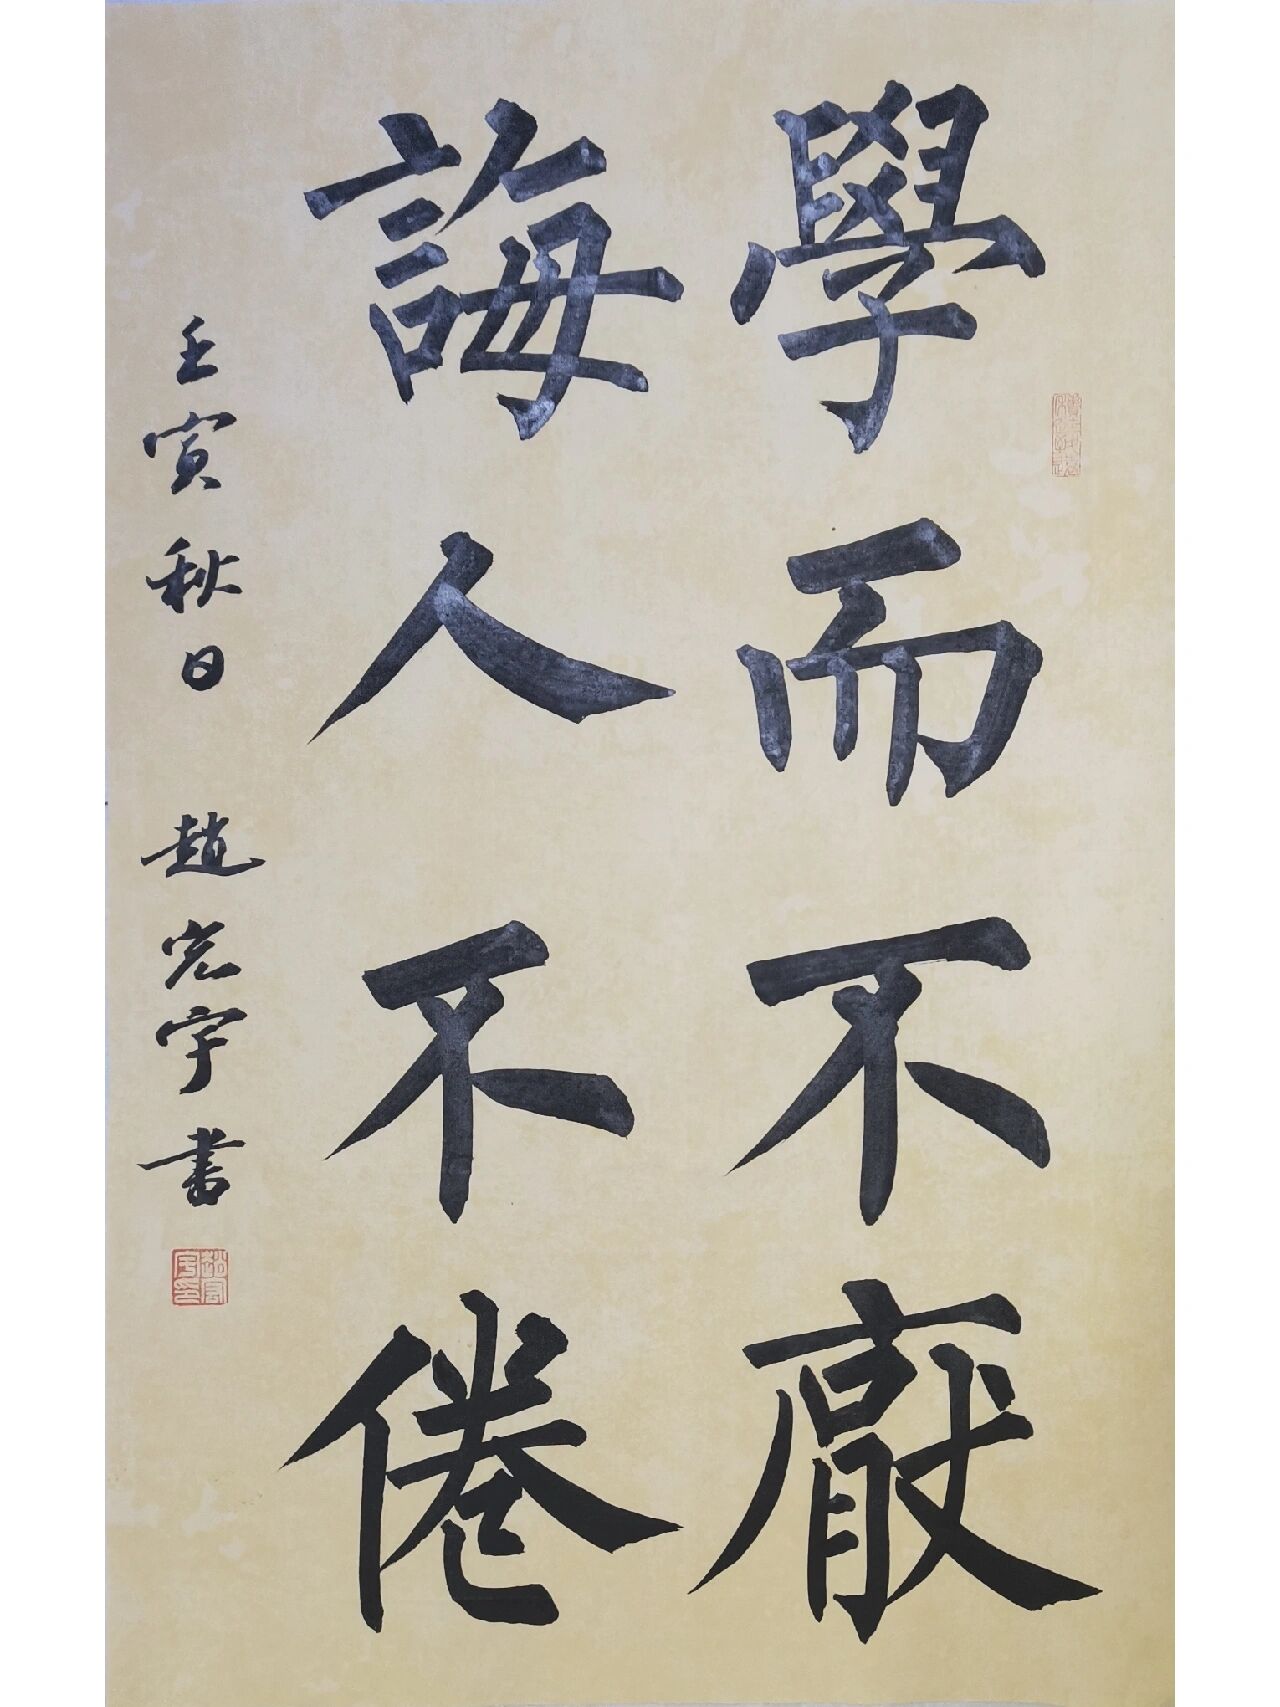 學而不厭
誨人不倦
壬寅秋日 趙宏宇書